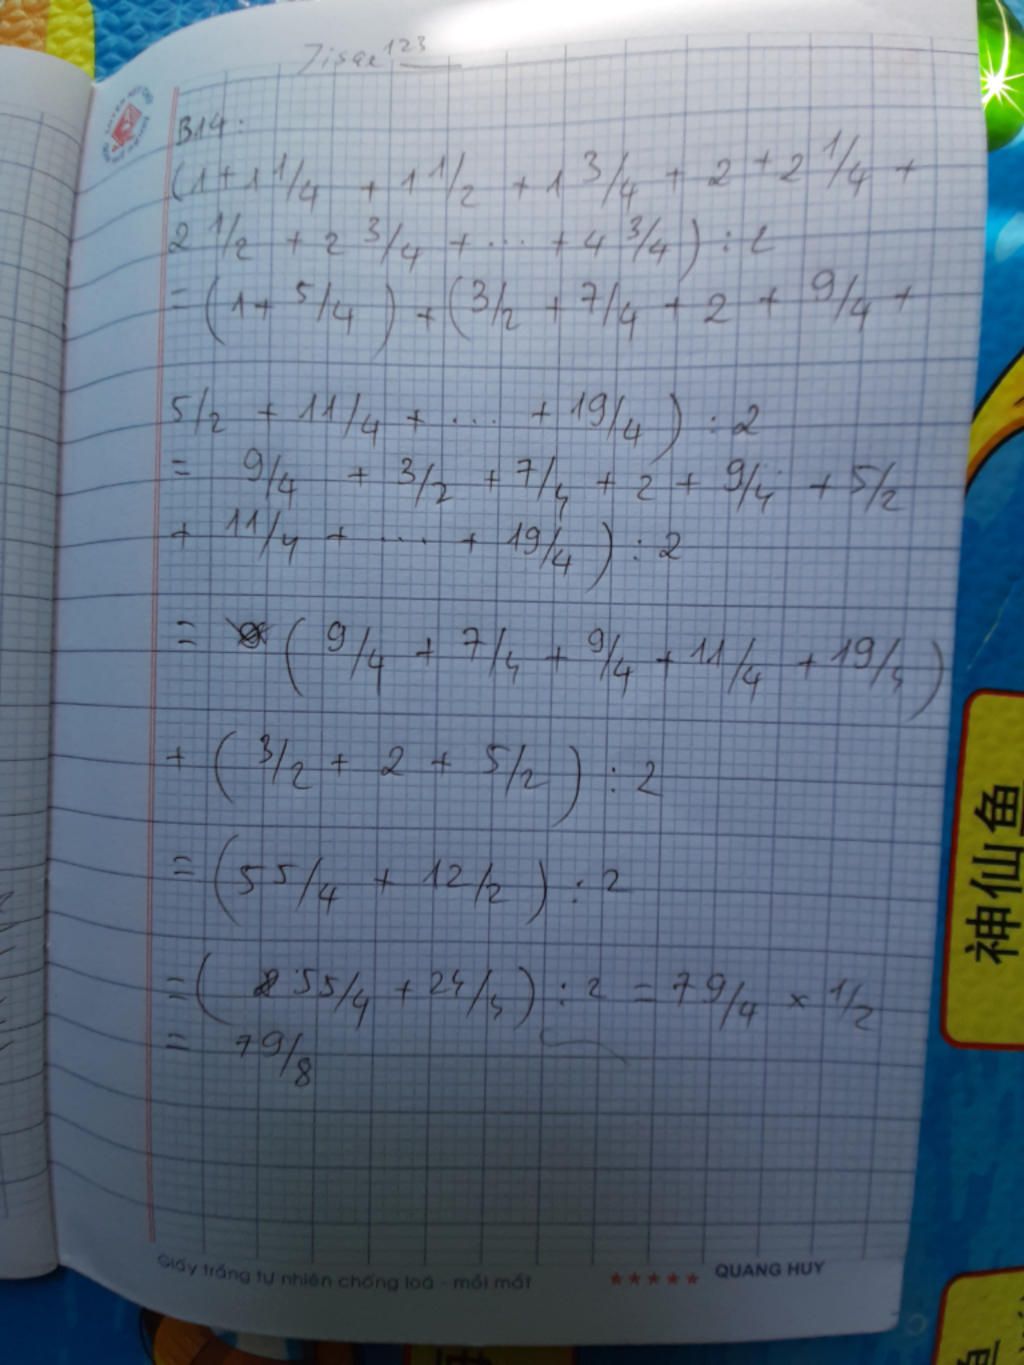 123
B14:
(1+1 1/4 + 1 1/2 + 1 3/4 + 2 + 2 1/4 +
2 1/2 + 2 3/4 + ... + 4 3/4) : 2
= (1 + 5/4) + (3/2 + 7/4 + 2 + 9/4 +
5/2 + 11/4 + ... + 19/4) : 2
= 9/4 + 3/2 + 7/4 + 2 + 9/4 + 5/2
+ 11/4 + .... + 19/4) : 2
= (9/4 + 7/4 + 9/4 + 11/4 + 19/4)
+ (3/2 + 2 + 5/2) : 2
= (55/4 + 12/2) : 2
= (55/4 + 24/4) : 2 = 79/4 × 1/2
= 79/8
Giấy trắng tự nhiên chống loá - mỏi mắt ★★★★★ QUANG HUY
神仙鱼